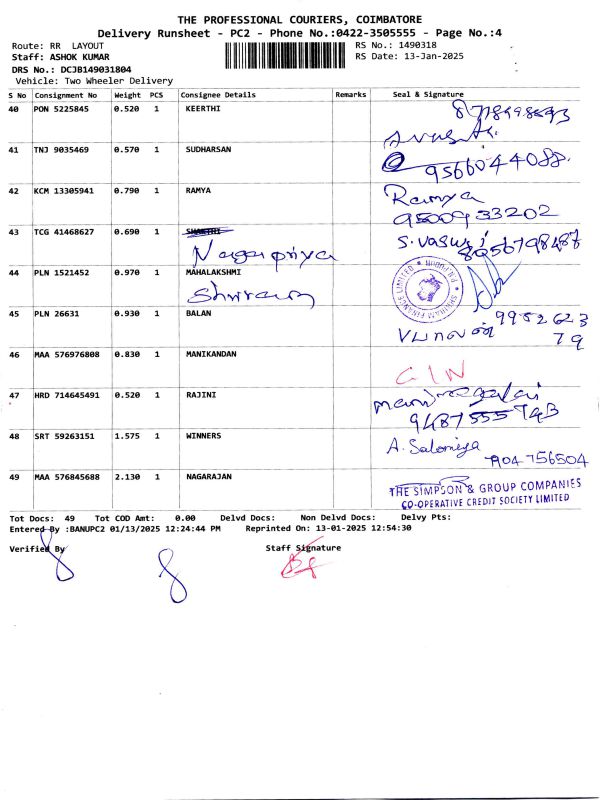 THE PROFESSIONAL COURIERS, COIMBATORE
Delivery Runsheet - PC2 - Phone No.:0422-3505555 - Page No.:4
Route: RR LAYOUT
RS No.: 1490318
Staff: ASHOK KUMAR
RS Date: 13-Jan-2025
DRS No.: DCJB149031804
Vehicle: Two Wheeler Delivery
S No Consignment No Weight PCS Consignee Details Remarks Seal & Signature
40 PON 5225845 0.520 1 KEERTHI
41 TNJ 9035469 0.570 1 SUDHARSAN
9566044088.
42 KCM 13305941 0.790 1 RAMYA Ramya
9500933202
43 TCG 41468627 0.690 1 SHAKTHI S. Vasuki
Nagapriya 8056798487
44 PLN 1521452 0.970 1 MAHALAKSHMI
SHRIRAM FINANCE LIMITED
Shriram
45 PLN 26631 0.930 1 BALAN
V பாலன் 9952623
79
46 MAA 576976808 0.830 1 MANIKANDAN
47 HRD 714645491 0.520 1 RAJINI
48 SRT 59263151 1.575 1 WINNERS A. Salomiya
49 MAA 576845688 2.130 1 NAGARAJAN
THE SIMPSON & GROUP COMPANIES
CO-OPERATIVE CREDIT SOCIETY LIMITED
Tot Docs: 49 Tot COD Amt: 0.00 Delvd Docs: Non Delvd Docs: Delvy Pts:
Entered By :BANUPC2 01/13/2025 12:24:44 PM Reprinted On: 13-01-2025 12:54:30
Verified By Staff Signature